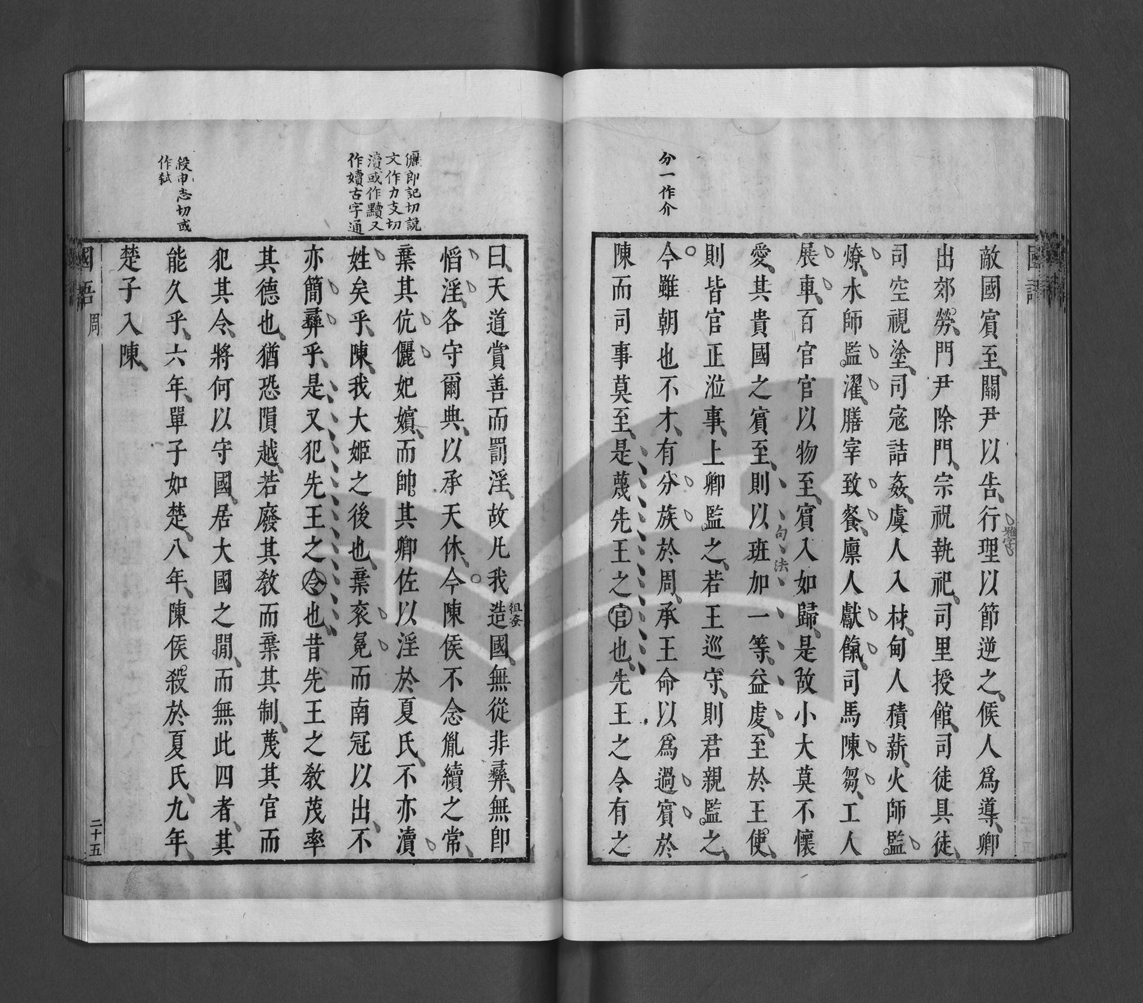 分一作介
敵國賓至關尹以告行理以節逆之候人爲導卿
出郊勞門尹除門宗祝執祀司里授館司徒具徒
司空視塗司寇詰姦虞人入材甸人積薪火師監
燎水師監濯膳宰致餐廩人獻餼司馬陳芻工人
展車百官官以物至賓入如歸是故小大莫不懷
句法
愛其貴國之賓至則以班加一等益虔至於王使
則皆官正涖事上卿監之若王巡守則君親監之
今雖朝也不才有分族於周承王命以爲過賓於
陳而司事莫至是蔑先王之官也先王之令有之
儷郎記切說
文作力支切
瀆或作黷又
作嬻古字通
殺申志切或
作弒
曰天道賞善而罰淫故凡我造國無從非彝無卽
徂蚕
慆淫各守爾典以承天休今陳侯不念胤續之常
棄其伉儷妃嬪而帥其卿佐以淫於夏氏不亦瀆
姓矣乎陳我大姬之後也棄衮冕而南冠以出不
亦簡彝乎是又犯先王之令也昔先王之敎茂率
其德也猶恐隕越若廢其敎而棄其制蔑其官而
犯其令將何以守國居大國之閒而無此四者其
能久乎六年單子如楚八年陳侯殺於夏氏九年
楚子入陳
國語
周
二十五